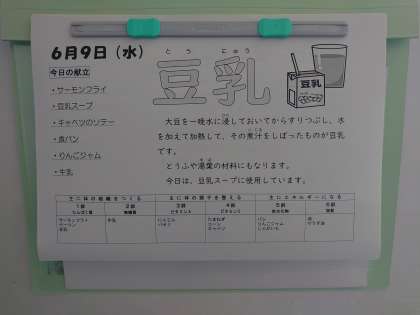 6月9日（水）
今日の献立
・サーモンフライ
・豆乳スープ
・キャベツのソテー
・食パン
・りんごジャム
・牛乳
とう にゅう
豆乳
豆乳
大豆を一晩水に浸しておいてからすりつぶし、水
を加えて加熱して、その煮汁をしぼったものが豆乳
です。
とうふや湯葉の材料にもなります。
今日は、豆乳スープに使用しています。
主に体の組織をつくる 主に体の調子を整える 主にエネルギーになる
1群 2群 3群 4群 5群 6群
たんぱく質 無機質 ビタミンA ビタミンC 炭水化物 脂質
サーモンフライ 牛乳 にんじん たまねぎ パン 油
ベーコン パセリ コーン りんごジャム
豆乳 キャベツ じゃがいも